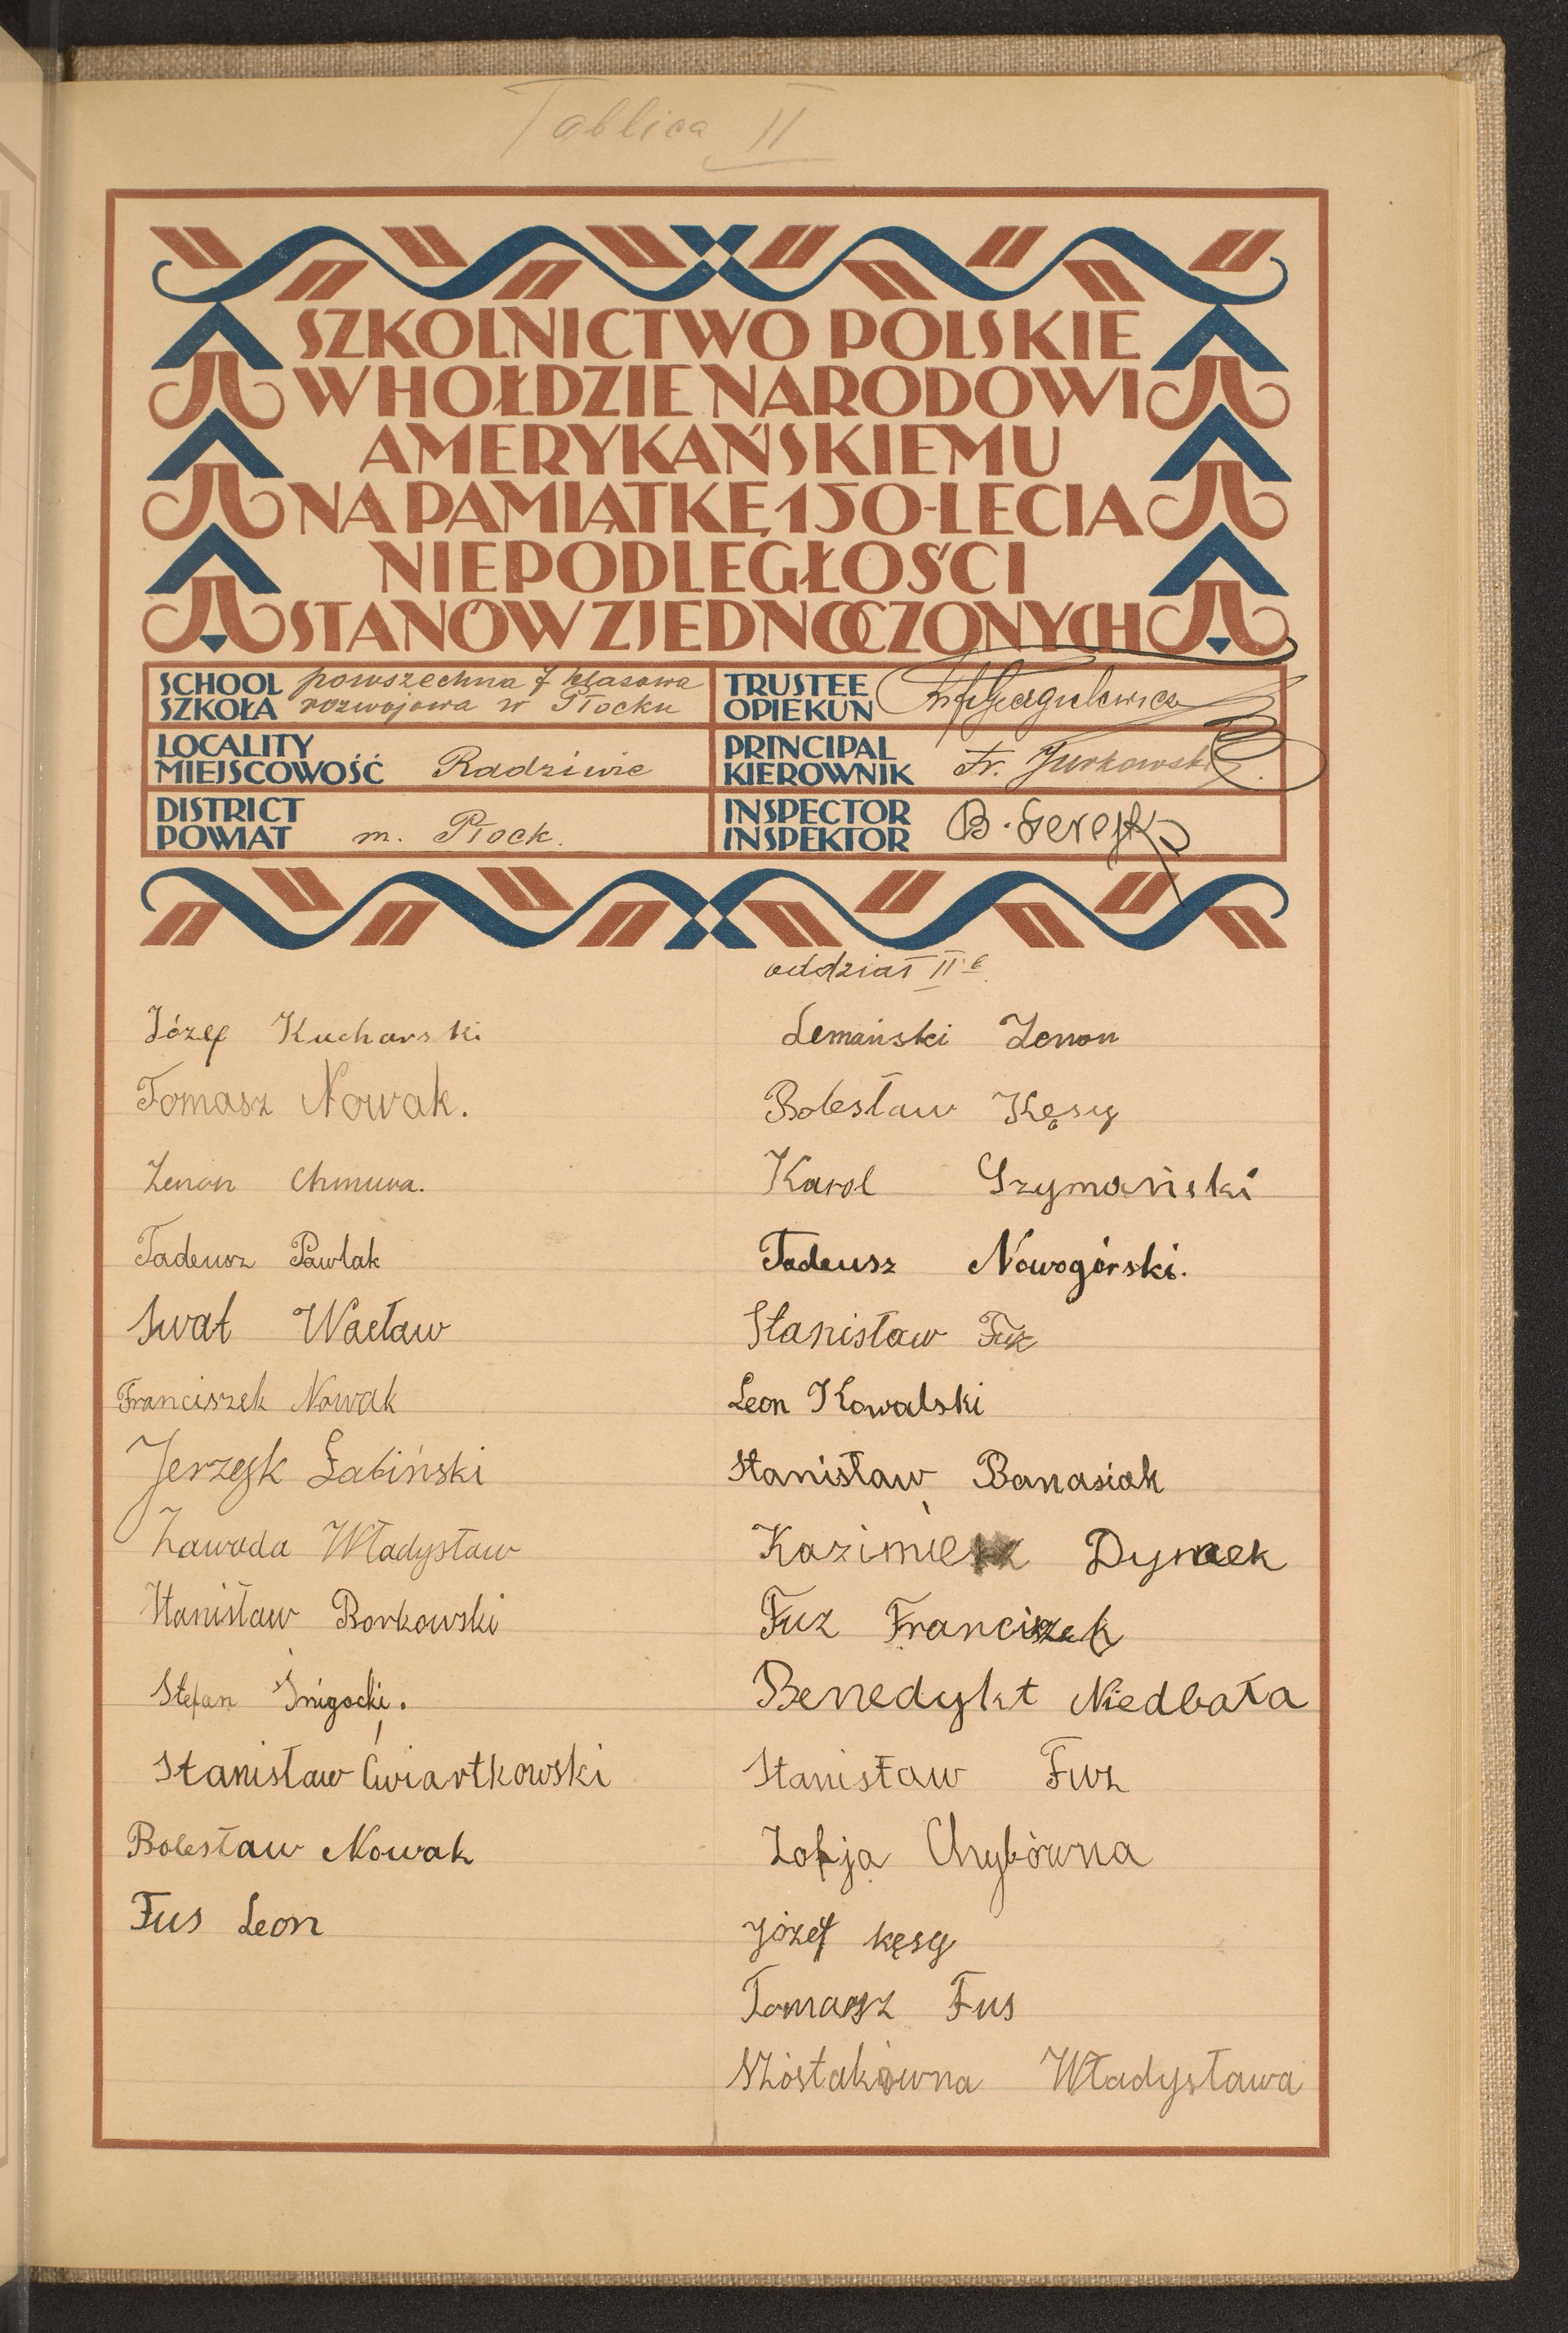 Tablica II
SZKOLNICTWO POLSKIE
W HOŁDZIE NARODOWI
AMERYKAŃSKIEMU
NA PAMIĄTKĘ 150-LECIA
NIEPODLEGŁOŚCI
STANÓW ZJEDNOCZONYCH
SCHOOL powszechna 7 klasowa
SZKOŁA rozwojowa w Płocku
TRUSTEE
OPIEKUN
LOCALITY
MIEJSCOWOŚĆ Radziwie
PRINCIPAL
KIEROWNIK Fr. Jurkowski
DISTRICT
POWIAT m. Płock.
INSPECTOR
INSPEKTOR B.
Józef Kucharski
Tomasz Nowak.
Zenon Chmura.
Tadeusz Pawlak
Swat Wacław
Franciszek Nowak
Jerzyk Łabiński
Zawada Władysław
Stanisław Borkowski
Stefan Śnigocki.
Stanisław Ćwiartkowski
Bolesław Nowak
Fus Leon
oddział II b
Lemański Zenon
Bolesław Kęsy
Karol Szymański
Tadeusz Nowogórski.
Stanisław Fuz
Leon Kowalski
Stanisław Banasiak
Kazimierz Dymek
Fuz Franciszek
Benedykt Niedbała
Stanisław Fuz
Zofja Chybówna
Józef kęsy
Tomasz Fus
Szóstakówna Władysława